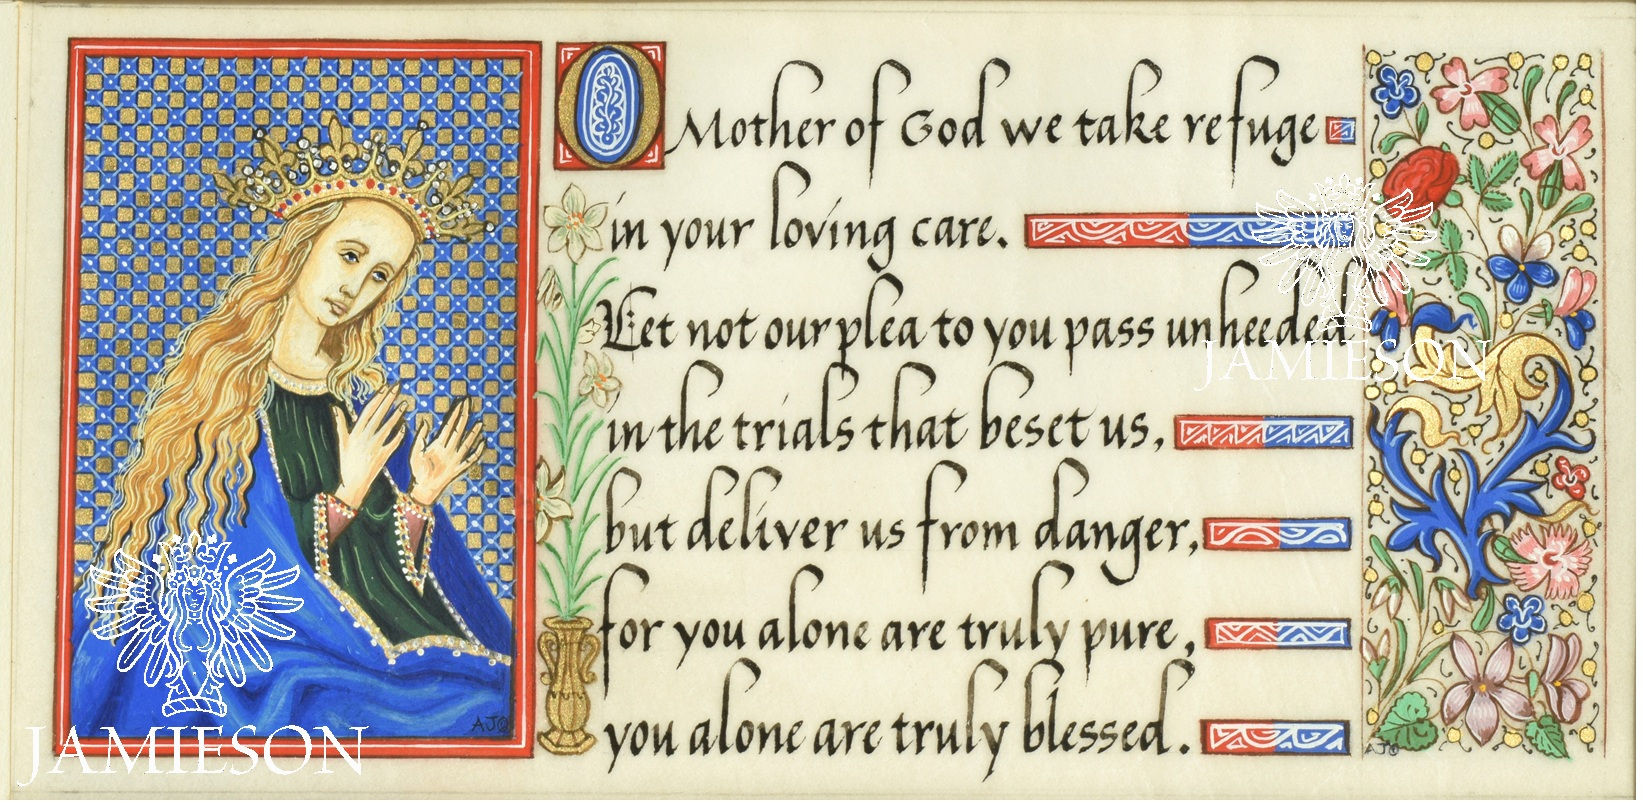 O Mother of God we take refuge
in your loving care.
Let not our plea to you pass unheeded
in the trials that beset us,
but deliver us from danger,
for you alone are truly pure,
you alone are truly blessed.
AJ
AJ
JAMIESON
JAMIESON